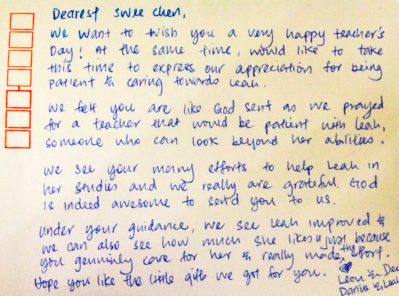 Dearest Swee Chen,
We want to wish you a very happy teacher's
Day! At the same time, would like to take
this time to express our appreciation for being
patient & caring towards Leah.
We felt you are like God sent as we prayed
for a teacher that would be patient with Leah,
someone who can look beyond her abilities.
We see your many efforts to help Leah in
her studies and we really are grateful. God
is indeed awesome to send you to us.
Under your guidance, we see Leah improved &
we can also see how much she likes u just because
you genuinely care for her & really made this effort.
Hope you like the little gifts we got for you.
Leon &
Darius & Leah